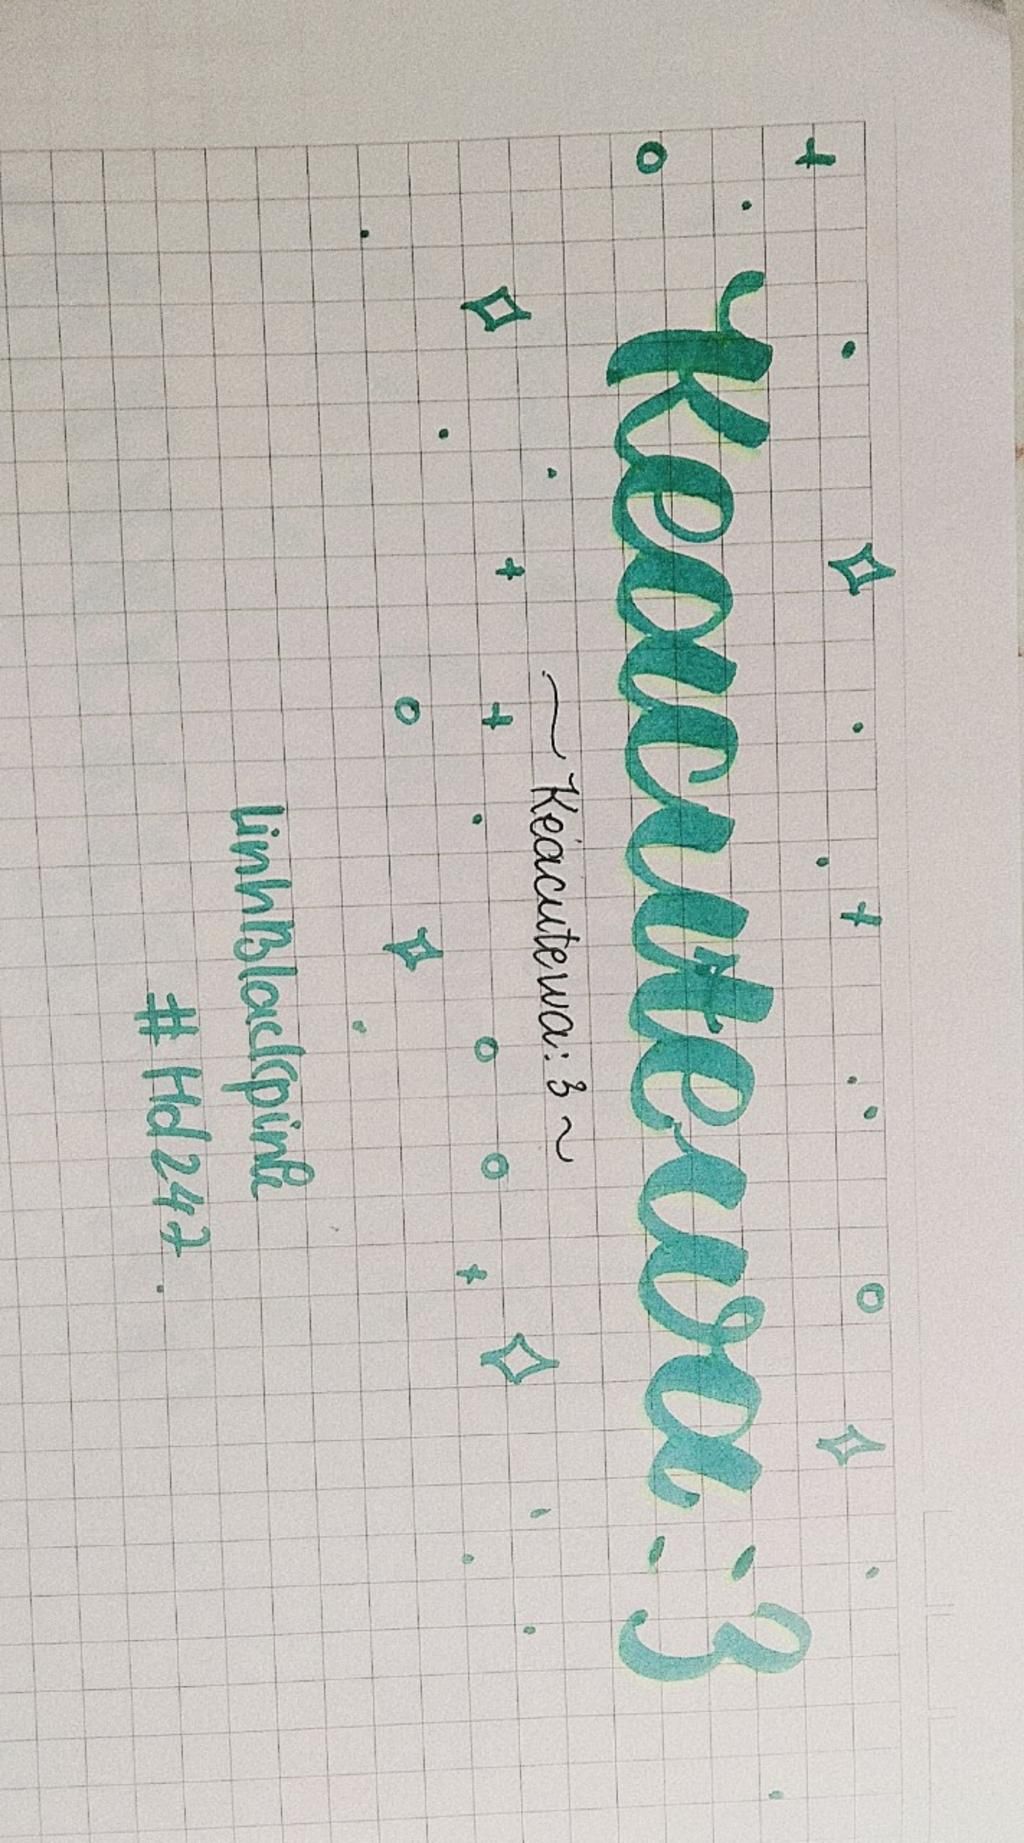 Keacutewa :3
~ Keacutewa :3 ~
linhBlackpink
#Hd247